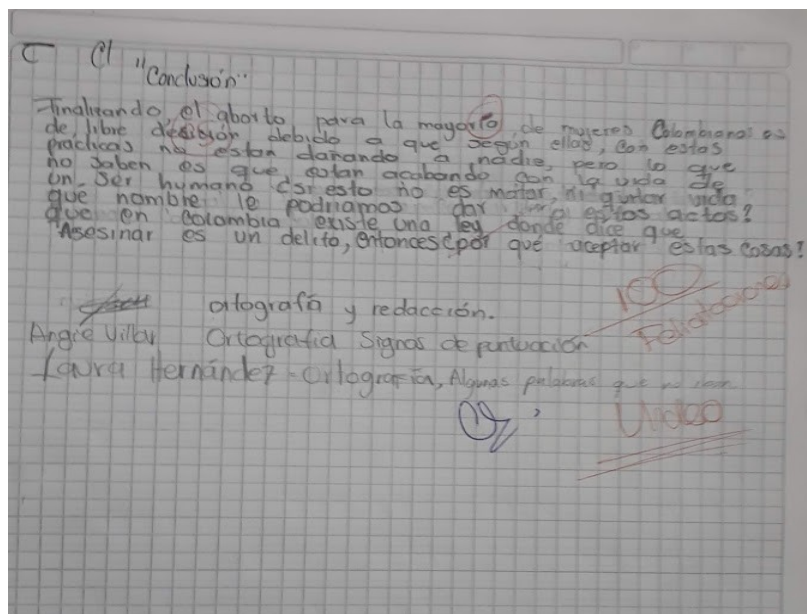 C Cl
"Conclusión"
Finalizando el aborto para la mayoría de mujeres Colombianas es
de libre desición debido a que según ellas, con estas
practicas no estan dañando a nadie, pero lo que
no saben es que estan acabando con la vida de
un ser humano ¿si esto no es matar, ni quitar vida
que nombre le podriamos dar a estos actos?
que en colombia existe una ley donde dice que
Asesinar es un delito, entonces ¿por qué aceptar estas cosas?
ortografía y redacción. 100
Felicitaciones
Angie Villar Ortografia Signos de puntuación
Laura Hernández - Ortografía, Algunas palabras que no